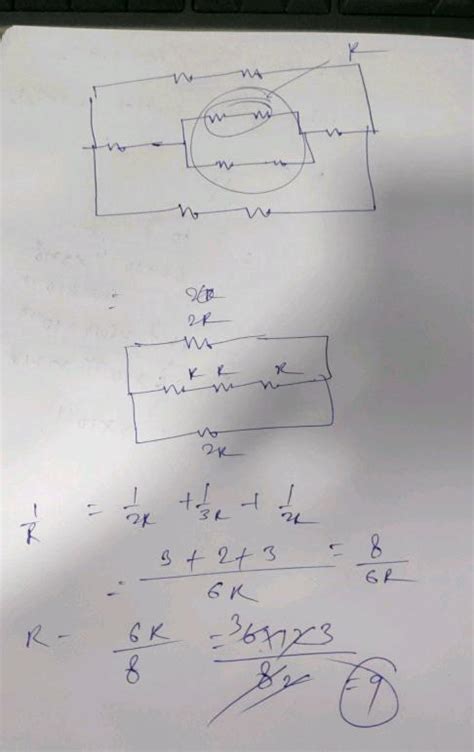 R
=
2R
2R
R R R
2R
1/R = 1/2R + 1/3R + 1/2R
= 3+2+3/6R = 8/6R
R - 6R/8 = = 9